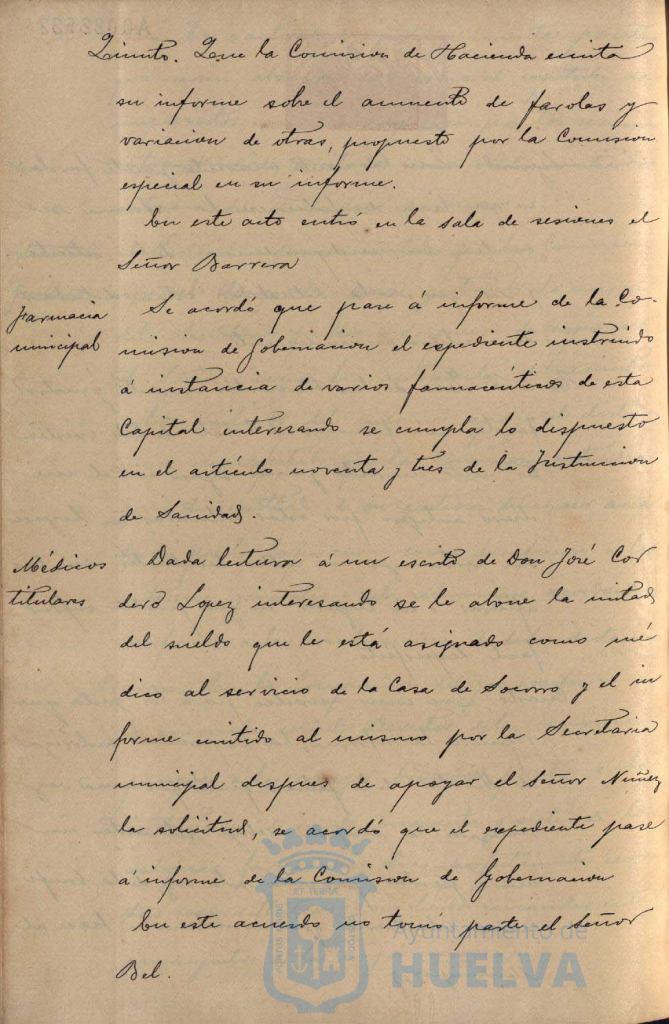 Quinto. Que la Comision de Hacienda emita
su informe sobre el aumento de farolas y
variacion de otras, propuesto por la Comision
especial en su informe.
En este acto entró en la sala de sesiones el
Señor Barrera
Farmacia
municipal
Se acordó que pase á informe de la Co-
mision de Gobernacion el expediente instruido
á instancia de varios farmacéuticos de esta
Capital interesando se cumpla lo dispuesto
en el artículo noventa y tres de la Instruccion
de Sanidad.
Médicos
titulares
Dada lectura á un escrito de Don José Cor
dero Lopez interesando se le abone la mitad
del sueldo que le está asignado como mé
dico al servicio de la Casa de Socorro y el in
forme emitido al mismo por la Secretaria
municipal despues de apoyar el Señor Nuñez
la solicitud, se acordó que el expediente pase
á informe de la Comision de Gobernacion
En este acuerdo no tomó parte el Señor
Bel.
Ayuntamiento de
HUELVA